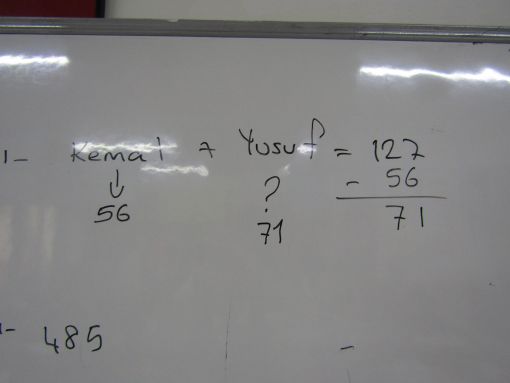 1- Kemal + Yusuf = 127
↓ ? - 56
56 71 71
- 485 -